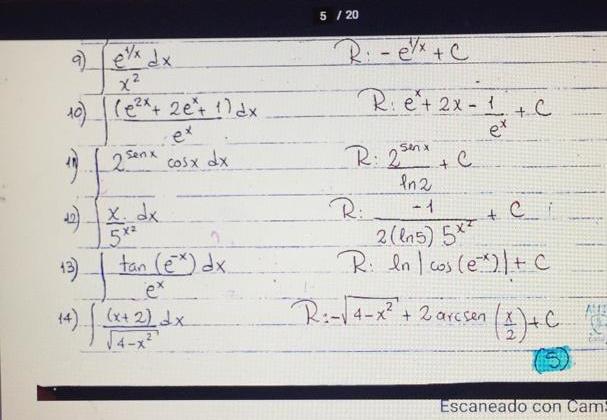 5 / 20
9) ∫ e^{1/x} dx / x² R: - e^{1/x} + C
10) ∫ (e^{2x} + 2e^x + 1) dx / e^x R: e^x + 2x - 1/e^x + C
11) ∫ 2^{sen x} cos x dx R: 2^{sen x} / ln2 + C
12) ∫ x / 5^{x²} dx R: -1 / 2(ln5) 5^{x²} + C
13) ∫ tan (e^{-x}) dx / e^x R: ln | cos (e^{-x}) | + C
14) ∫ (x+2) dx / √(4-x²) R: -√(4-x²) + 2 arcsen (x/2) + C
(5)
Escaneado con Cam